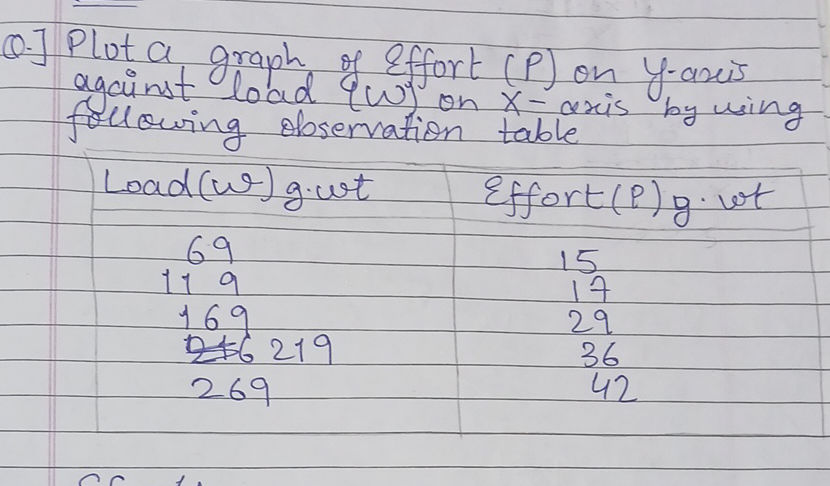 Q.] Plot a graph of Effort (P) on Y-axis
against load {W} on X-axis by using
following observation table
Load(w) g.wt Effort(P) g.wt
69 15
119 17
169 29
219 36
269 42